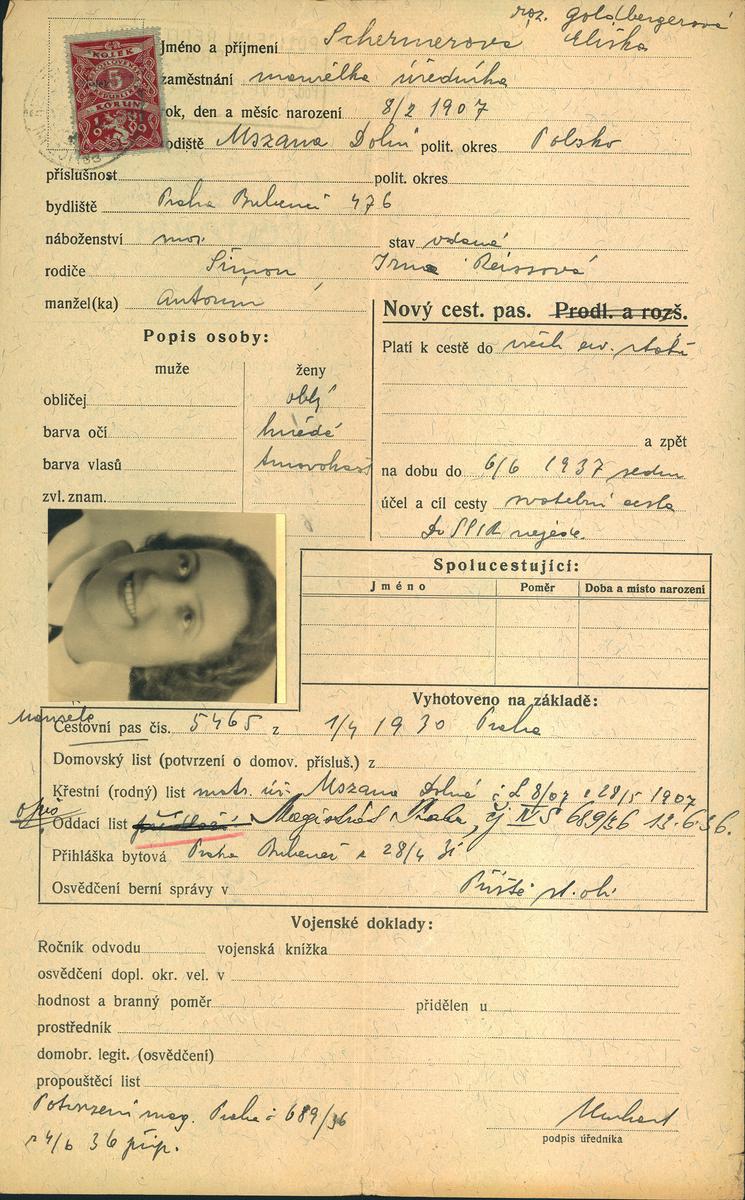 roz. goldbergerová
Jméno a příjmení Schermerová Eliška
zaměstnání manželka úředníka
rok, den a měsíc narození 8/2 1907
odiště Mszana Dolni polit. okres Polsko
příslušnost polit. okres
bydliště Praha Bubeneč 476
náboženství moj. stav vdaná
rodiče Šimon Irma Reissová
manžel(ka) Antonín
Nový cest. pas. Prodl. a rozš.
Popis osoby:
Platí k cestě do všech ev. států
muže ženy
obličej oblý
barva očí hnědé
barva vlasů tmavohnědé
zvl. znam.
a zpět
na dobu do 6/6 1937
účel a cíl cesty svatební cesta
Do SSSR nejede.
KOLEK
5
KORUN
1919
Spolucestující:
Jméno Poměr Doba a místo narození
Vyhotoveno na základě:
manžela
Cestovní pas čís. 5465 z 1/4 1930 Praha
Domovský list (potvrzení o domov. přísluš.) z
Křestní (rodný) list matr. úř. Mszana Dolná č. 8/07 z 28/5 1907
opis
Oddací list Magistrát Praha, čj IV S 689/36 12.6.36.
Přihláška bytová Praha Bubeneč z 28/4 31
Osvědčení berní správy v Příště st. ob.
Vojenské doklady:
Ročník odvodu vojenská knížka
osvědčení dopl. okr. vel. v
hodnost a branný poměr přidělen u
prostředník
domobr. legit. (osvědčení)
propouštěcí list
Potvrzení mag. Praha č 689/36
z 4/6 36 přip.
podpis úředníka